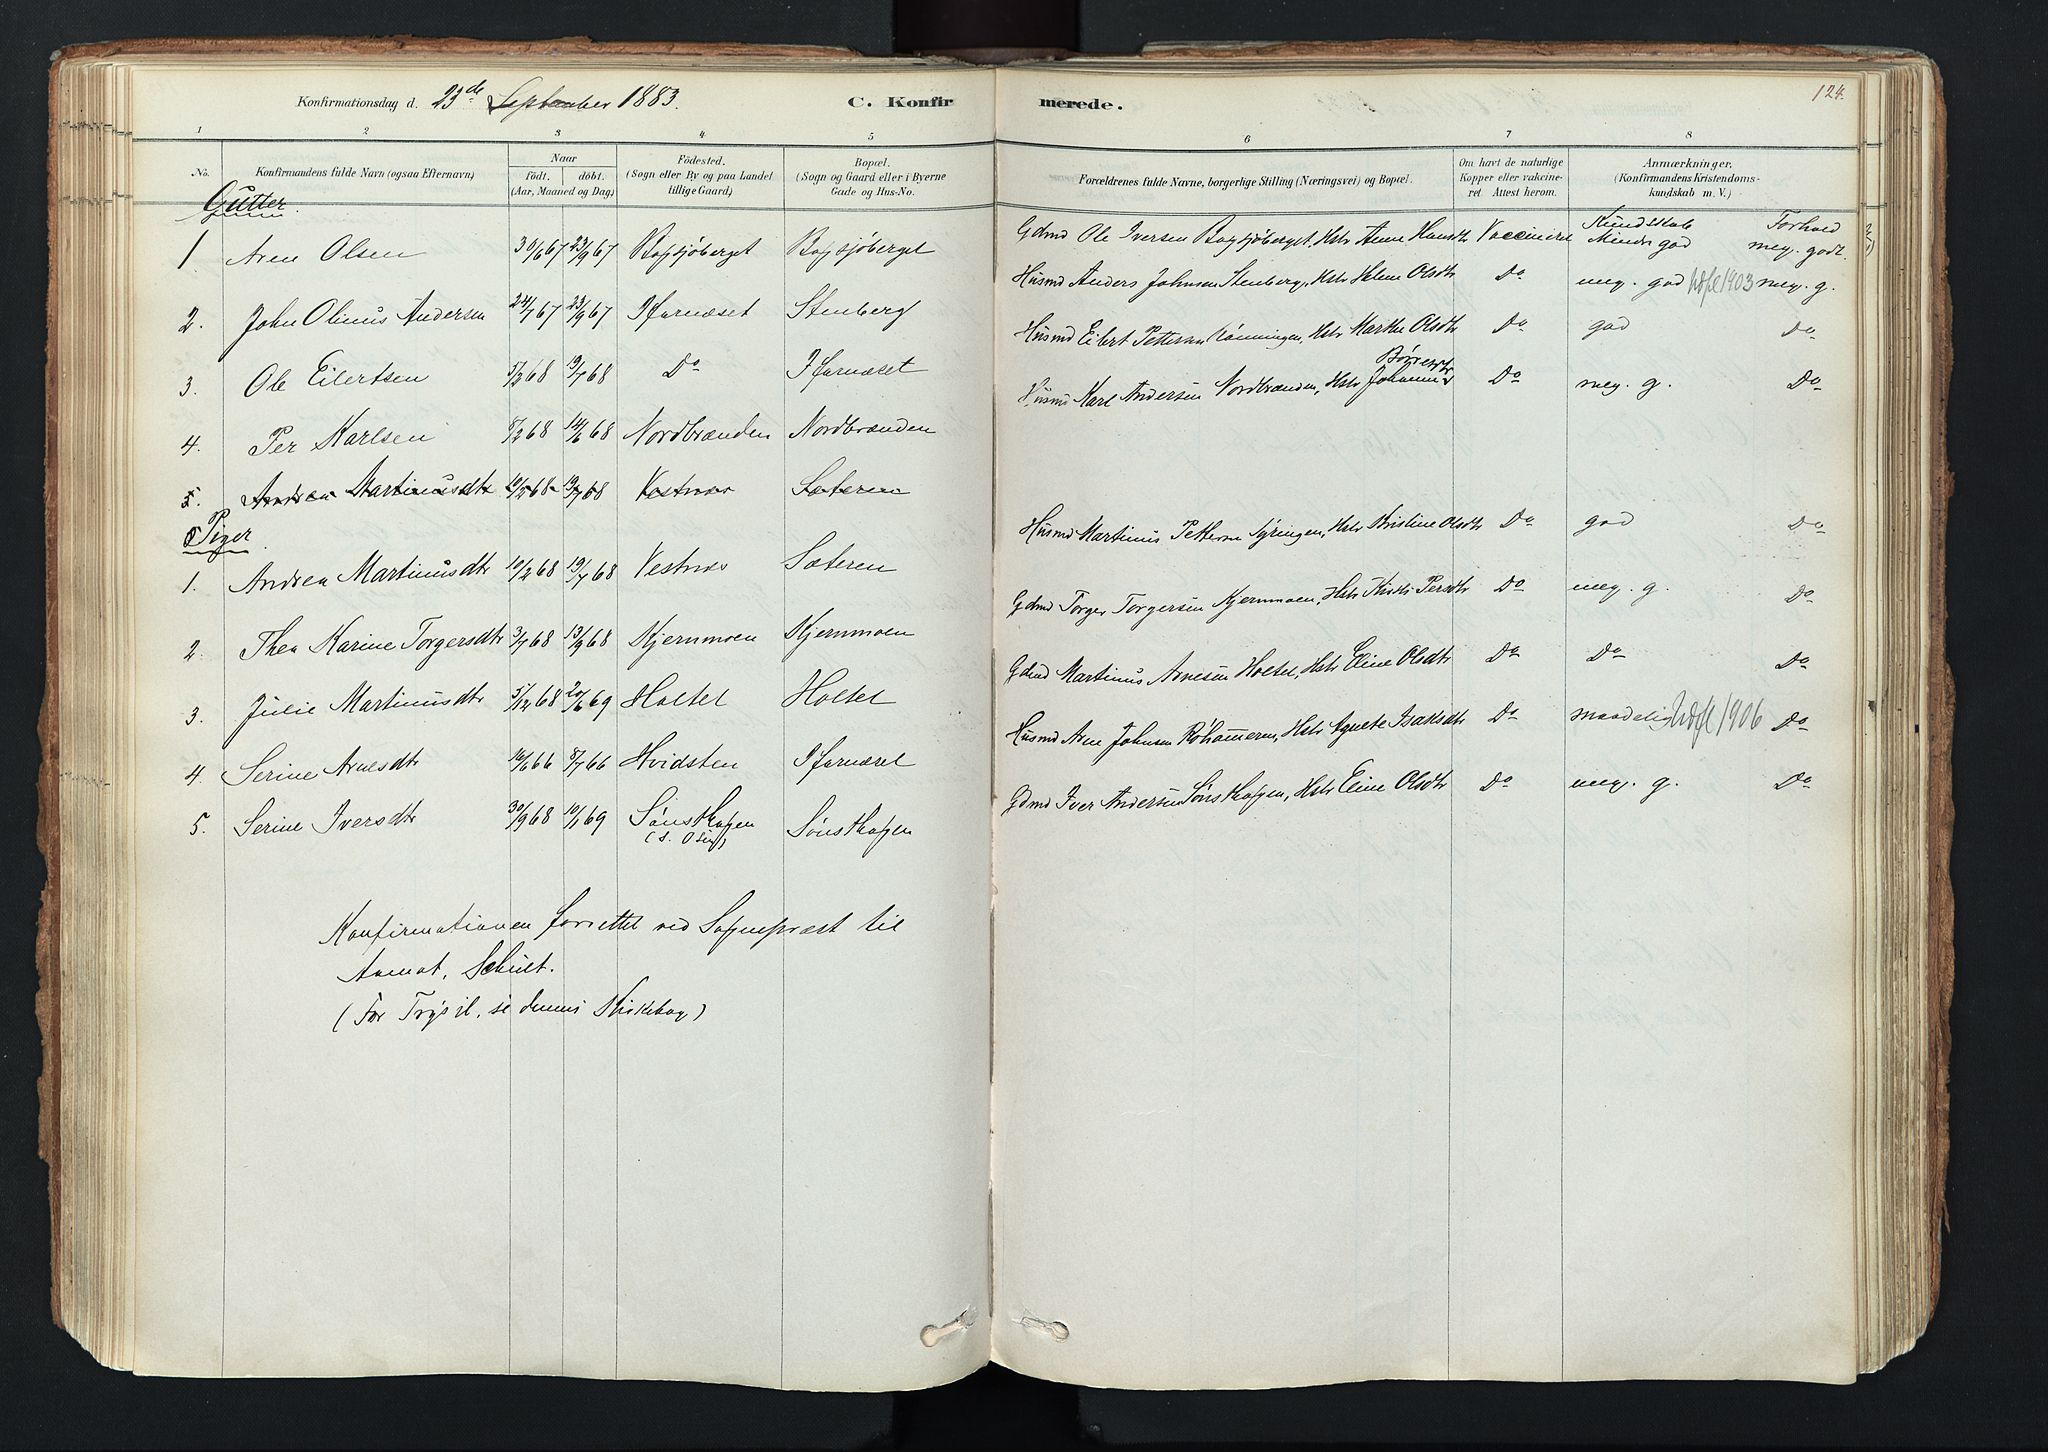 Konfirmationsdag d. 23de September 1883.
C. Konfirmerede.
124.
1 2 3 4 5 6 7 8
No. Konfirmandens fulde Navn (ogsaa Efternavn) Naar födt. döbt. (Aar, Maaned og Dag) Födested. (Sogn eller By og paa Landet tillige Gaard) Bopæl. (Sogn og Gaard eller i Byerne Gade og Hus-No. Forældrenes fulde Navne, borgerlige Stilling (Næringsvei) og Bopæl. Om havt de naturlige Kopper eller vakcineret. Attest herom. Anmærkninger. (Konfirmandens Kristendomskundskab m. V.)
Gutter.
Kundskab Forhold
1 Arne Olsen 30/6 67 23/9 67 Bogsjøberget Bogsjøberget Gdmd Ole Iversen Bogsjøberget, Hstr Anne Hansdtr Vaccineret Mindre god meg. godt.
2. John Olinus Andersen 24/7 67 23/9 67 I furnæset Stenberg Husmd Anders Johnsen Stenberg, Hstr Helene Olsdtr Do meg. god Udfl 1903 meg. g.
3. Ole Eilertsen 5/3 68 19/7 68 Do I furnæset Husmd Eilert Pettersen Rønningen, Hstr Marthe Olsdtr Do god Do
4. Per Karlsen 8/2 68 14/6 68 Nordbrænden Nordbrænden Husmd Karl Andersen Nordbrænden, Hstr Johanne Børresdtr Do meg. g. Do
5. Andrea Martinusdtr 10/2 68 19/7 68 Vestnæs Sæteren
Piger.
1. Andrea Martinusdtr 10/2 68 19/7 68 Vestnæs Sæteren Husmd Martinus Pettersen Hstr Kristine Olsdtr Do god Do
2. Thea Karine Torgersdtr 3/7 68 13/9 68 Kjernmoen Kjernmoen Gdmd Torger Torgersen Kjernmoen, Hstr Persdtr Do meg. g. Do
3. Julie Martinusdtr 5/12 68 20/6 69 Holtet Holtet Gdmd Martinus Arnesen Holtet, Hstr Eline Olsdtr Do Do Do
4. Serine Arnesdtr 16/6 66 8/7 66 Hvidsten I furnæset Husmd Arne Johnsen Hstr Agnete Isaksdtr Do maadelig Udfl 1906 Do
5. Serine Iversdtr 30/9 68 10/1 69 Sønskogen (S. Osen) Sønskogen Gdmd Iver Andersen Sønskogen, Hstr Eline Olsdtr Do meg. g. Do
Konfirmationen forrettet ved Sognepræst til
Aamot, Schult.
(For Trysil, se dennes Kirkebog)